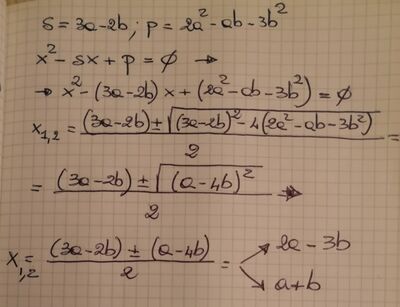 s = 3a-2b; p = 2a²-ab-3b²
x²-sx+p=∅ →
→ x²-(3a-2b)x+(2a²-ab-3b²)=∅
x₁,₂ = ((3a-2b)±√((3a-2b)²-4(2a²-ab-3b²)))/2 =
= ((3a-2b)±√((a-4b)²))/2 →
x₁,₂ = ((3a-2b)±(a-4b))/2 = ↗ 2a-3b
↘ a+b